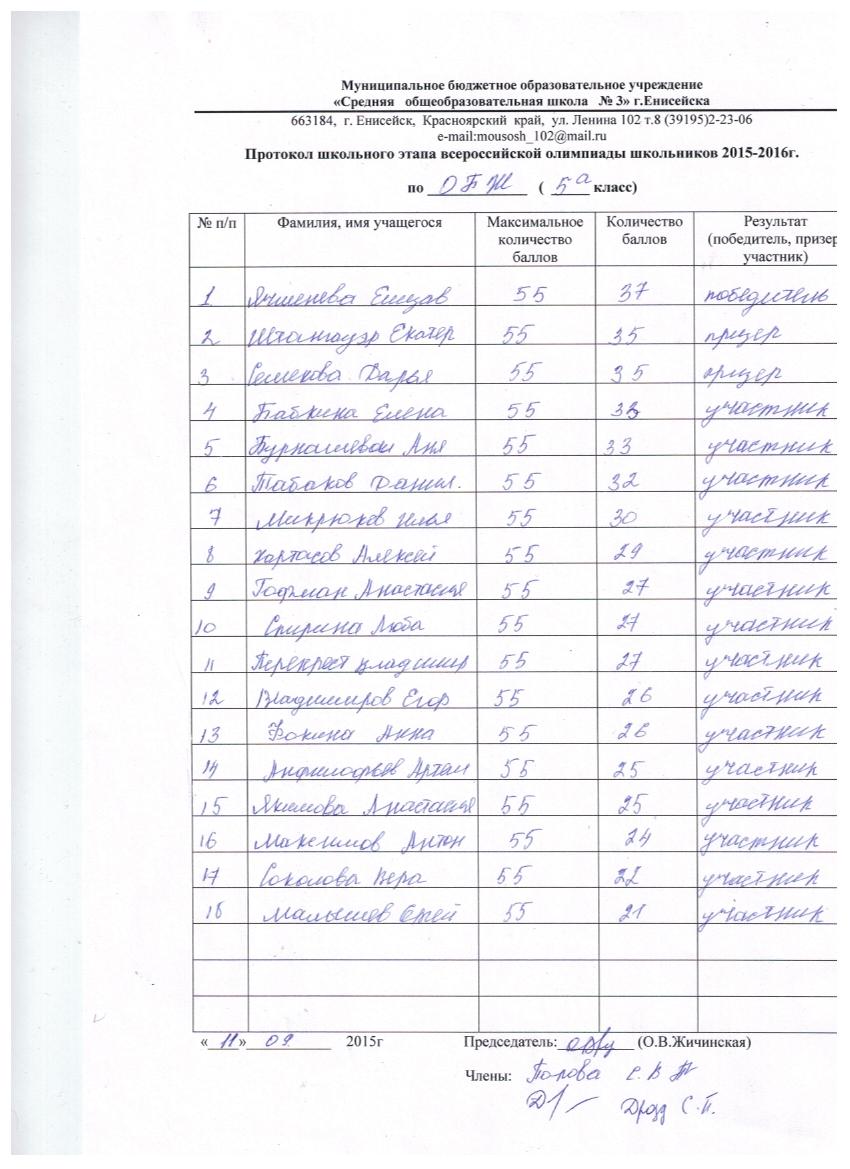 Муниципальное бюджетное образовательное учреждение
«Средняя общеобразовательная школа № 3» г.Енисейска
663184, г. Енисейск, Красноярский край, ул. Ленина 102 т.8 (39195)2-23-06
e-mail:mousosh_102@mail.ru
Протокол школьного этапа всероссийской олимпиады школьников 2015-2016г.
по ОБЖ ( 5а класс)
№ п/п Фамилия, имя учащегося Максимальное количество баллов Количество баллов Результат (победитель, призер участник)
1 Ячменева Елизав 55 37 победитель
2 Штангауэр Екатер 55 35 призер
3 Семекова Дарья 55 35 призер
4 Бабкина Елена 55 33 участник
5 Аня 55 33 участник
6 Табаков Данил. 55 32 участник
7 Микрюков Илья 55 30 участник
8 Алексей 55 29 участник
9 Гофман Анастасия 55 27 участник
10 Спирина Люба 55 27 участник
11 Перекрест Владимир 55 27 участник
12 Владимиров Егор 55 26 участник
13 Фокина Анна 55 26 участник
14 Анфилофьев Артем 55 25 участник
15 Якимова Анастасия 55 25 участник
16 Максимов Антон 55 24 участник
17 Соколова Вера 55 22 участник
18 Малышев 55 21 участник
« 11 » 09 2015г Председатель: (О.В.Жичинская)
Члены: Попова Е. В
Дрозд С.П.